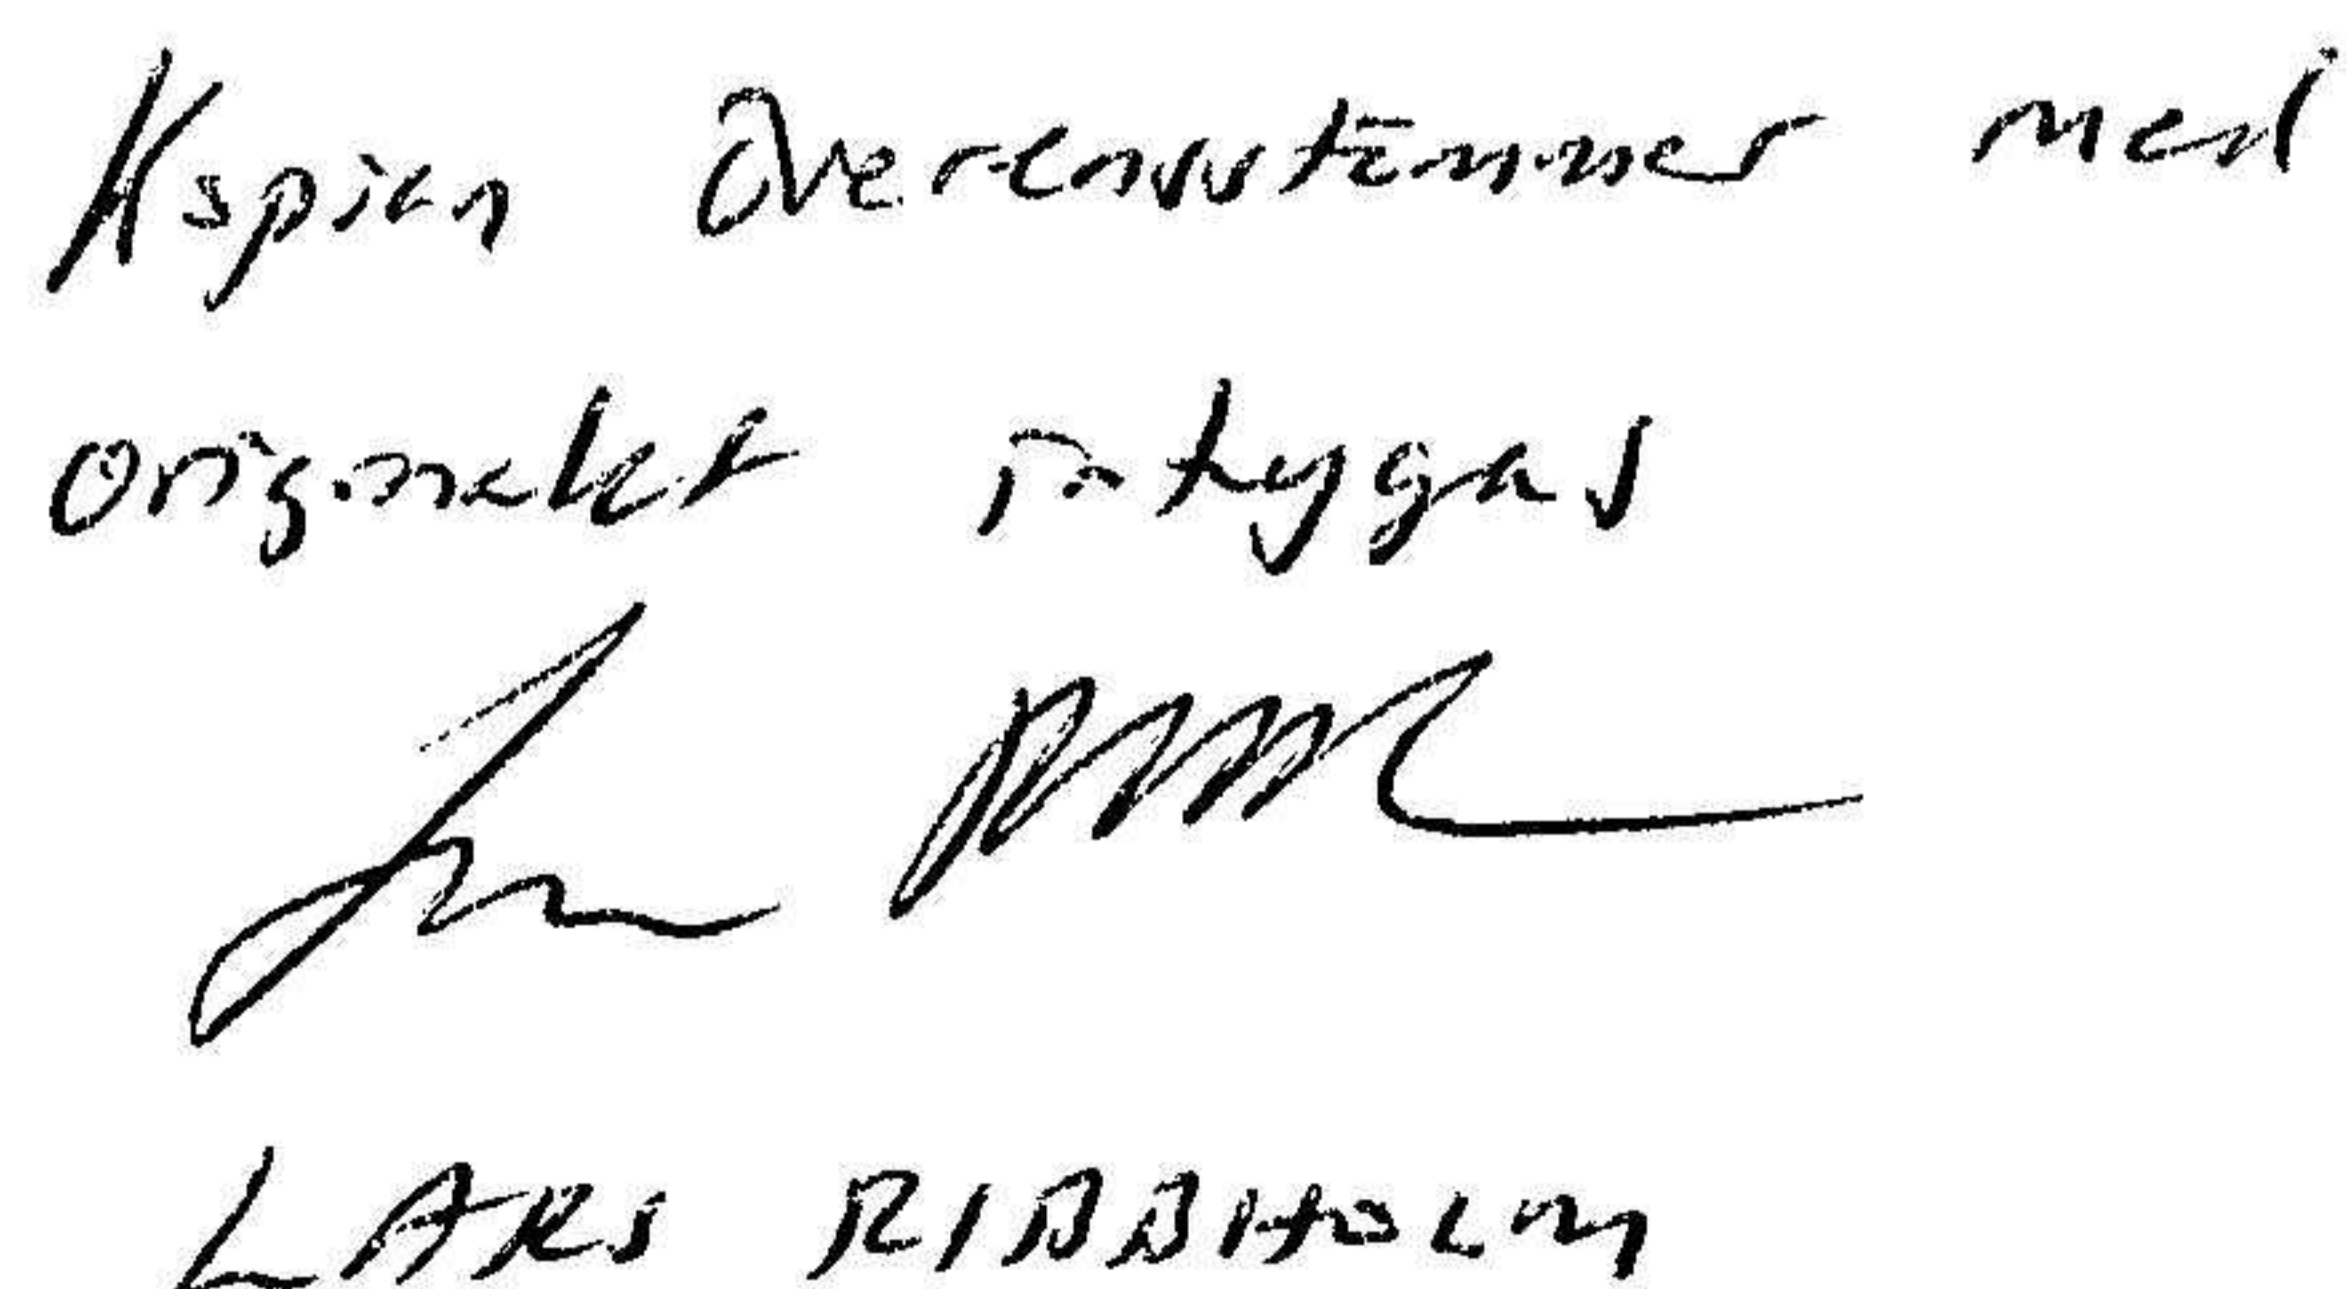 Kopian överensstämmer med
originalet intygas
LARS RIBBHOLM